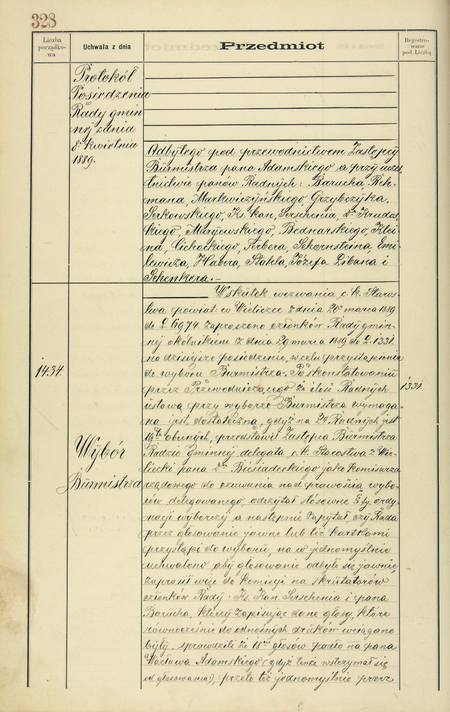 328
Liczba porządko-wa
Uchwała z dnia
Przedmiot
Registro-wane pod Liczbą
Protokół
Posiedzenia
Rady gmin
nej z dnia
8º kwietnia
1889.
Odbytego pod przewodnictwem Zastępcy
Burmistrza pana Adamskiego a przy ucze
stnictwie panów Radnych: Barucha, Reh-
mana, Markwiczyńskiego, Grzybczyka,
Serkowskiego, Ks. kan. Serschenia, Dr
kiego, Maryewskiego, Bednarskiego, Klei
na, Cichockiego, Ferbera, Schornsteina, Emi
lewicza, Habera, Stahla, Józefa Libana i
Schenkera.—
Wskutek wezwania c. k. Staros-
twa powiat. w Wieliczce z dnia 20º marca 1889
do L. 6974 zaproszono członków Rady gmin
nej okólnikiem z dnia 29 marca 1889 do L. 1331.
na dzisiejsze posiedzenie, w celu przystąpienia
1434
do wyboru Burmistrza. Po skonstatowaniu
przez Przewodniczącego że ilość Radnych
1331.
ustawą przy wyborze Burmistrza wymaga-
na jest dostateczną, gdyż na 24 Radnych jest
19tu obecnych, przedstawił Zastępca Burmistrza
Wybór
Burmistrza
Radzie gminnej delegata c. k. Starostwa z Wie
liczki pana Dra Biesiadeckiego jako komisarza
rządowego do czuwania nad prawością wybo-
rów delegowanego, odczytał stosowne §fy ordy
nacji wyborczej a następnie zapytał czy Rada
przez głosowanie jawne lub też kartkami
przystąpi do wyboru, na co jednomyślnie
uchwalono aby głosowanie odbyło się jawnie,
zaprosił więc do komisji na skrutatorów
członków Rady: Ks. Kan. Serschenia i pana
Barucha, którzy zapisując dane głosy, które
równocześnie do odnośnych druków wciągane
były, sprawdzili że 18cie głosów padło na pana
Wacława Adamskiego (gdyż tenże wstrzymał się
od głosowania), przeto też jednomyślnie przez